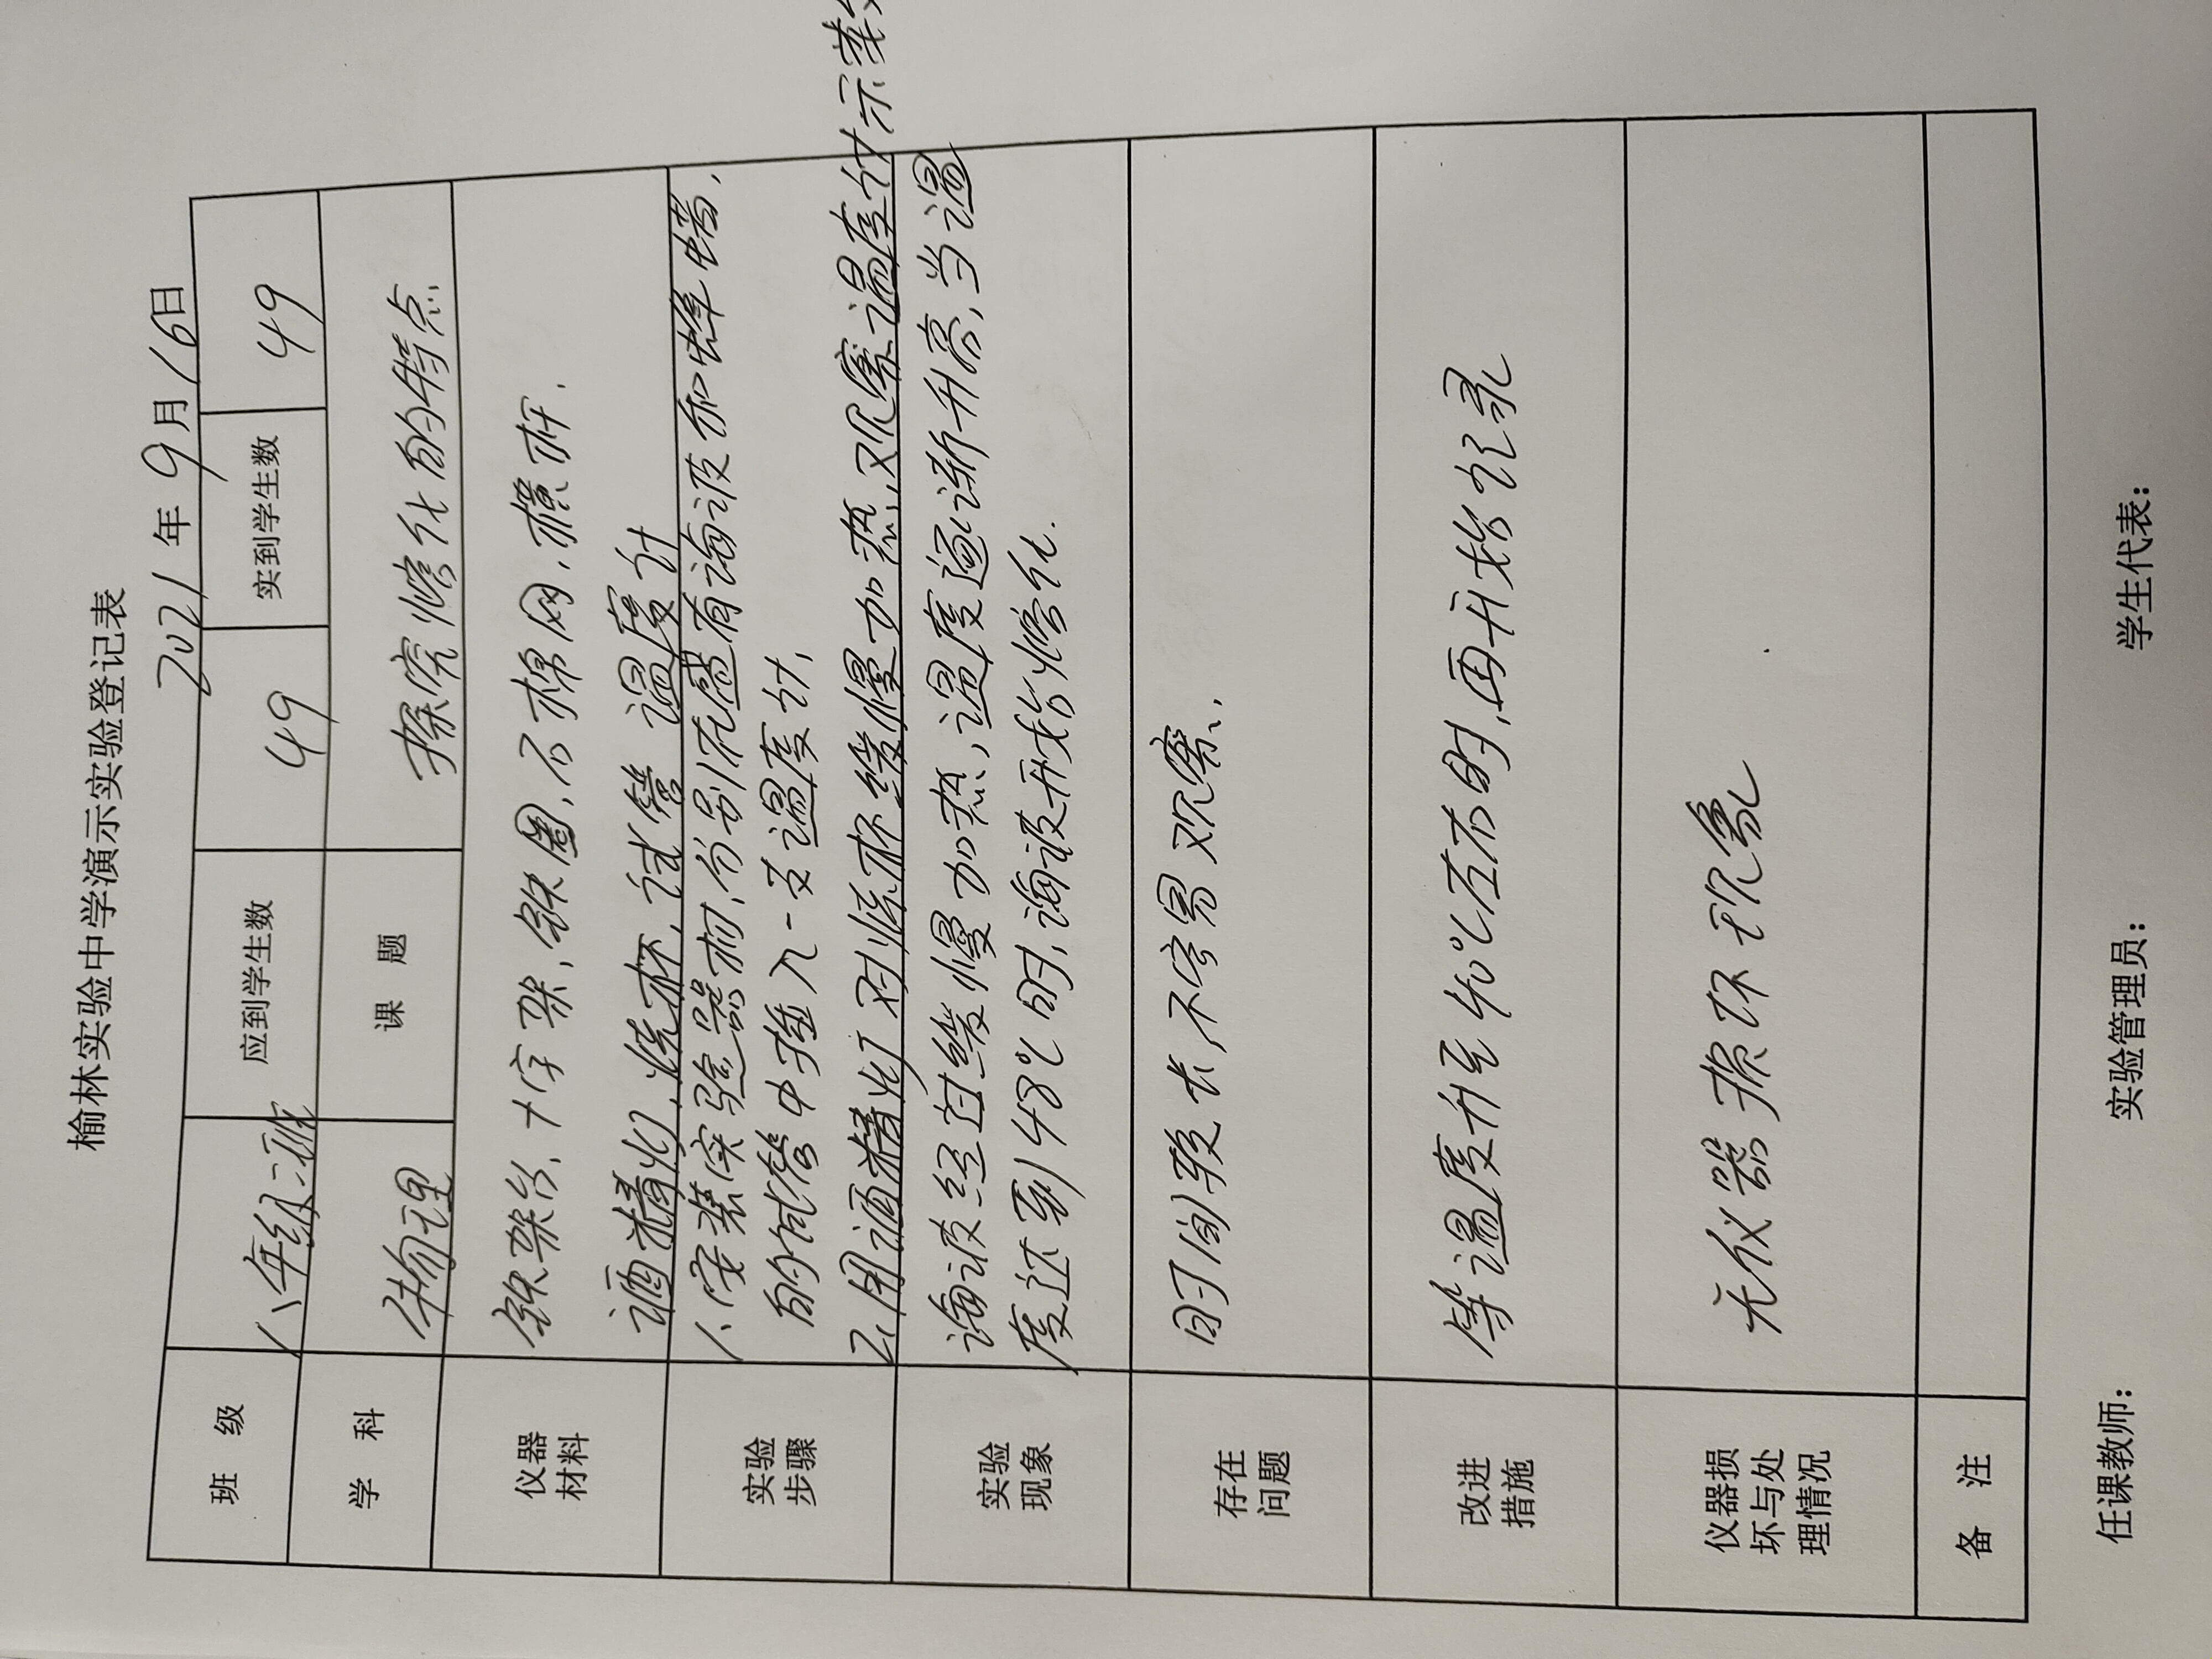 榆林实验中学演示实验登记表
2021年9月16日
班 级 八年级二班 应到学生数 49 实到学生数 49
学 科 物理 课 题 探究熔化的特点
仪器材料 铁架台、十字架、铁圈、石棉网、横杆、
酒精灯、烧杯、试管 温度计
实验步骤 1、安装实验器材、分别在盛有海波和蜂蜡、
的试管中插入一支温度计、
2、用酒精灯对烧杯缓慢加热、观察温度计示数
实验现象 海波经过缓慢加热,温度逐渐升高,当温
度达到48℃时,海波开始熔化.
存在问题 时间较长,不容易观察、
改进措施 等温度升至40℃左右时,再开始记录
仪器损坏与处理情况 无仪器损坏现象
备 注
任课教师: 实验管理员: 学生代表: